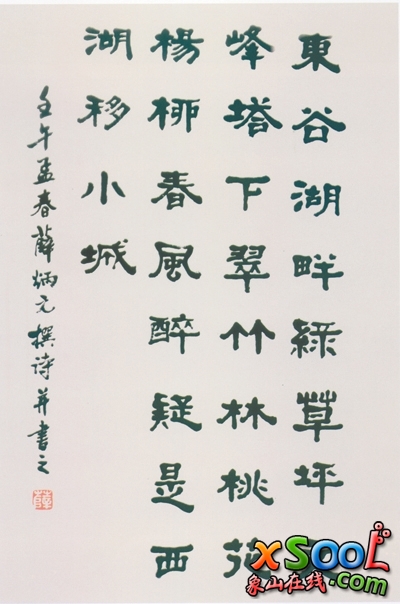 東谷湖畔綠草坪
峰塔下翠竹林桃花
楊柳春風醉疑是西
湖移小城
壬午孟春薛炳元撰诗并書之
xsool
象山在线.com